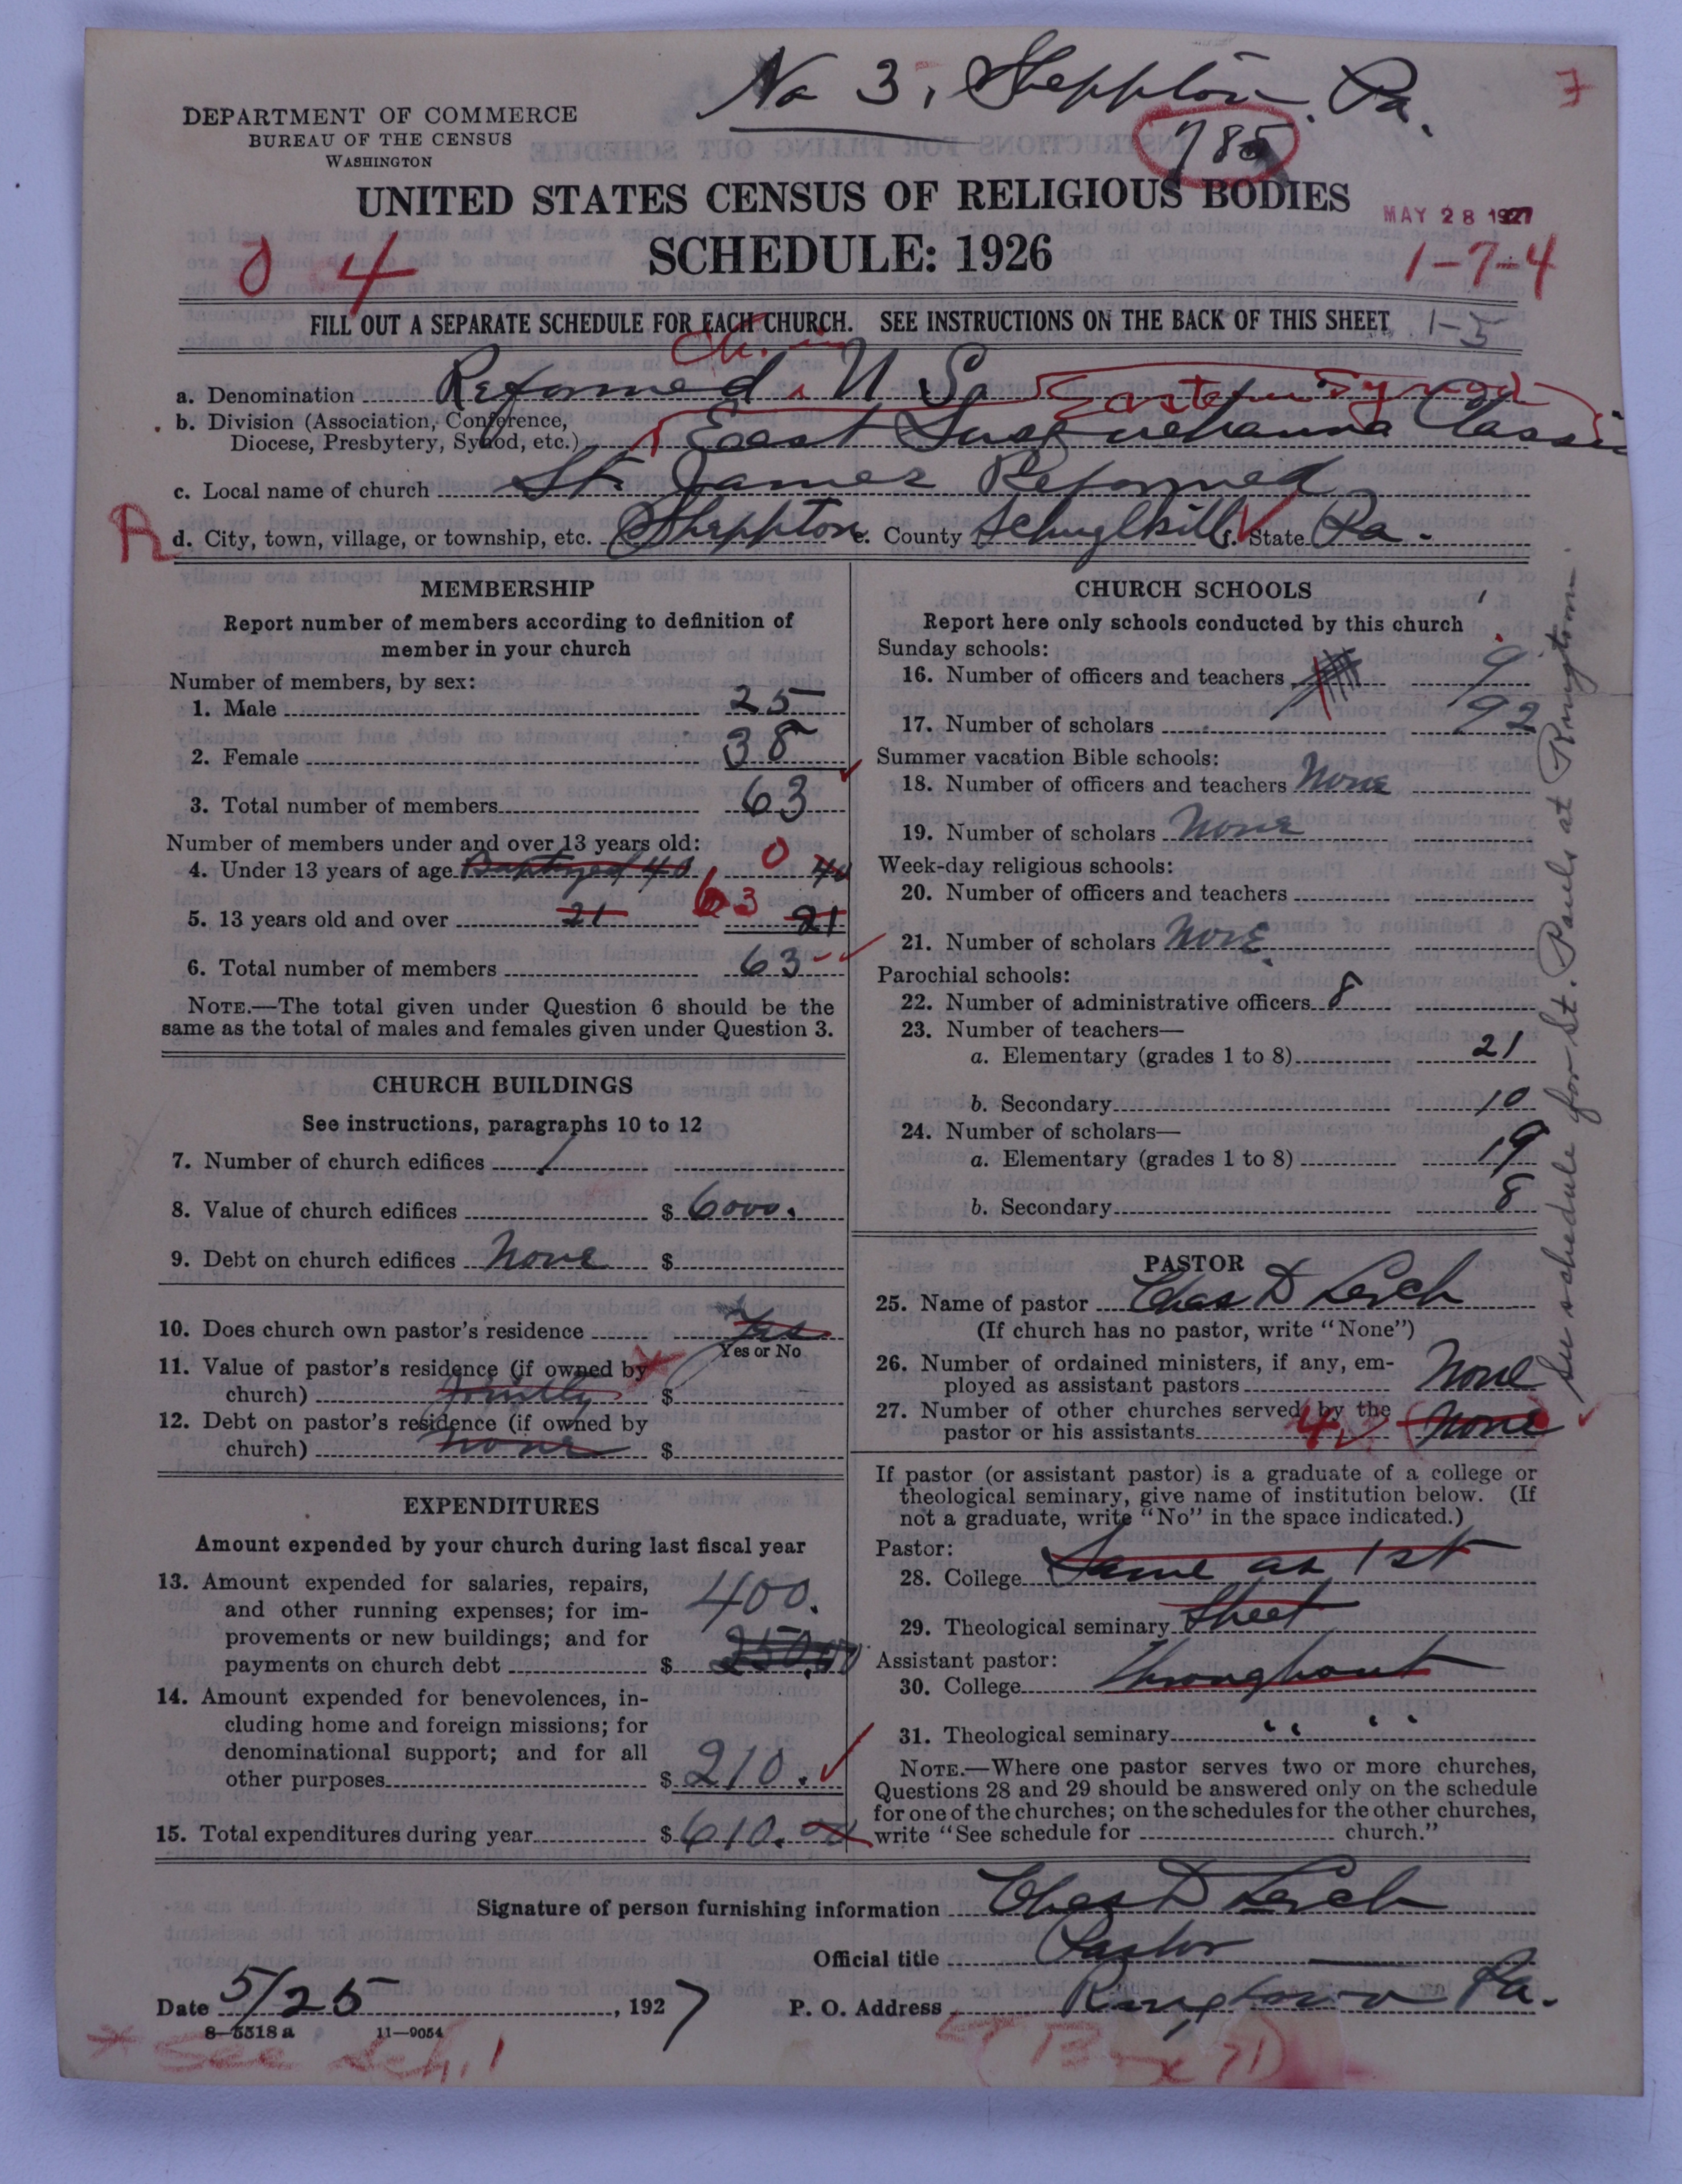 No 3, Sheppton, Pa.
7
DEPARTMENT OF COMMERCE
BUREAU OF THE CENSUS
WASHINGTON
785
UNITED STATES CENSUS OF RELIGIOUS BODIES
MAY 28 1927
SCHEDULE: 1926
0 4
1-7-4
FILL OUT A SEPARATE SCHEDULE FOR EACH CHURCH. SEE INSTRUCTIONS ON THE BACK OF THIS SHEET
1-5
Ch. in
a. Denomination Reformed U S. Eastern Synod
b. Division (Association, Conference,
Diocese, Presbytery, Synod, etc.) East Susquehanna Classis
c. Local name of church St. James Reformed
R
d. City, town, village, or township, etc. Sheppton e. County Schuylkill f. State Pa.
MEMBERSHIP
Report number of members according to definition of
member in your church
Number of members, by sex:
1. Male 25
2. Female 38
3. Total number of members 63
Number of members under and over 13 years old:
4. Under 13 years of age Baptized 40 0 40
5. 13 years old and over 21 63 21
6. Total number of members 63
NOTE.—The total given under Question 6 should be the
same as the total of males and females given under Question 3.
CHURCH BUILDINGS
See instructions, paragraphs 10 to 12
7. Number of church edifices 1
8. Value of church edifices $ 6000.
9. Debt on church edifices None $
10. Does church own pastor's residence Yes
Yes or No
11. Value of pastor's residence (if owned by
church) jointly $
12. Debt on pastor's residence (if owned by
church) none $
EXPENDITURES
Amount expended by your church during last fiscal year
13. Amount expended for salaries, repairs,
and other running expenses; for im-
provements or new buildings; and for
payments on church debt $ 400.
250.00
14. Amount expended for benevolences, in-
cluding home and foreign missions; for
denominational support; and for all
other purposes $ 210.
15. Total expenditures during year $ 610.00
CHURCH SCHOOLS
Report here only schools conducted by this church
Sunday schools:
16. Number of officers and teachers 9
17. Number of scholars 192
Summer vacation Bible schools:
18. Number of officers and teachers None
19. Number of scholars None
Week-day religious schools:
20. Number of officers and teachers
21. Number of scholars None
Parochial schools:
22. Number of administrative officers 8
23. Number of teachers—
a. Elementary (grades 1 to 8) 21
b. Secondary 10
24. Number of scholars—
a. Elementary (grades 1 to 8) 19
b. Secondary 8
PASTOR
25. Name of pastor Chas D Lerch
(If church has no pastor, write "None")
26. Number of ordained ministers, if any, em-
ployed as assistant pastors None
27. Number of other churches served by the
pastor or his assistants 4 None
If pastor (or assistant pastor) is a graduate of a college or
theological seminary, give name of institution below. (If
not a graduate, write "No" in the space indicated.)
Pastor:
28. College Same as 1st
29. Theological seminary Sheet
Assistant pastor:
30. College Throughout
31. Theological seminary " "
NOTE.—Where one pastor serves two or more churches,
Questions 28 and 29 should be answered only on the schedule
for one of the churches; on the schedules for the other churches,
write "See schedule for church."
See schedule for St. Pauls at Ringtown.
Signature of person furnishing information Chas D Lerch
Official title Pastor
Date 5/25, 1927 P. O. Address Ringtown Pa.
8—5518 a 11—9054
* See Sch. 1
(Box 71)